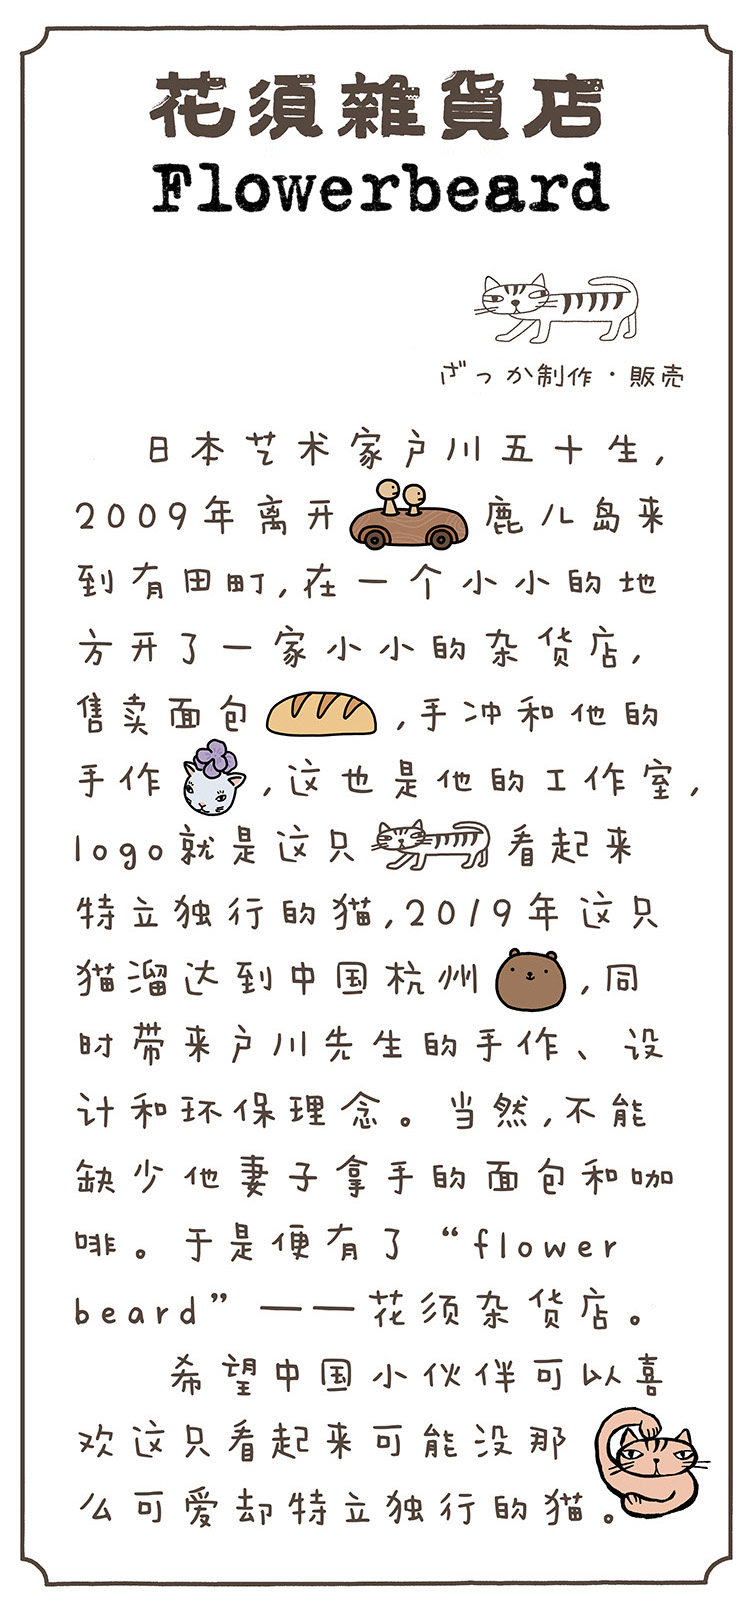 花須雜貨店
Flowerbeard
ざっか制作・販売
日本艺术家户川五十生,
2009年离开鹿儿岛来
到有田町,在一个小小的地
方开了一家小小的杂货店,
售卖面包,手冲和他的
手作,这也是他的工作室,
logo就是这只看起来
特立独行的猫,2019年这只
猫溜达到中国杭州,同
时带来户川先生的手作、设
计和环保理念。当然,不能
缺少他妻子拿手的面包和咖
啡。于是便有了“flower
beard”——花须杂货店。
希望中国小伙伴可以喜
欢这只看起来可能没那
么可爱却特立独行的猫。